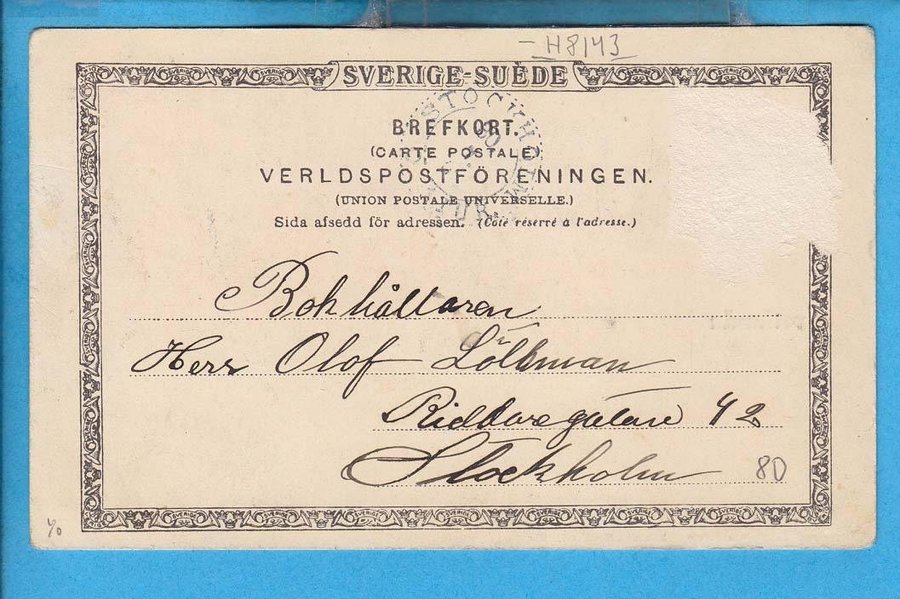 H8143
SVERIGE-SUÈDE
STOCKHOLM
BREFKORT.
(CARTE POSTALE)
VERLDSPOSTFÖRENINGEN.
(UNION POSTALE UNIVERSELLE.)
Sida afsedd för adressen. (Côté réservé à l'adresse.)
Bokhållaren
Herr Olof
Riddaregatan 42
Stockholm
80